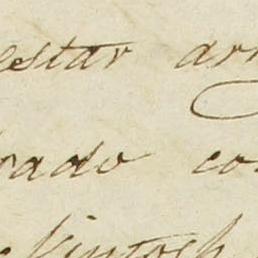 estar arr
rado co
ckintosh